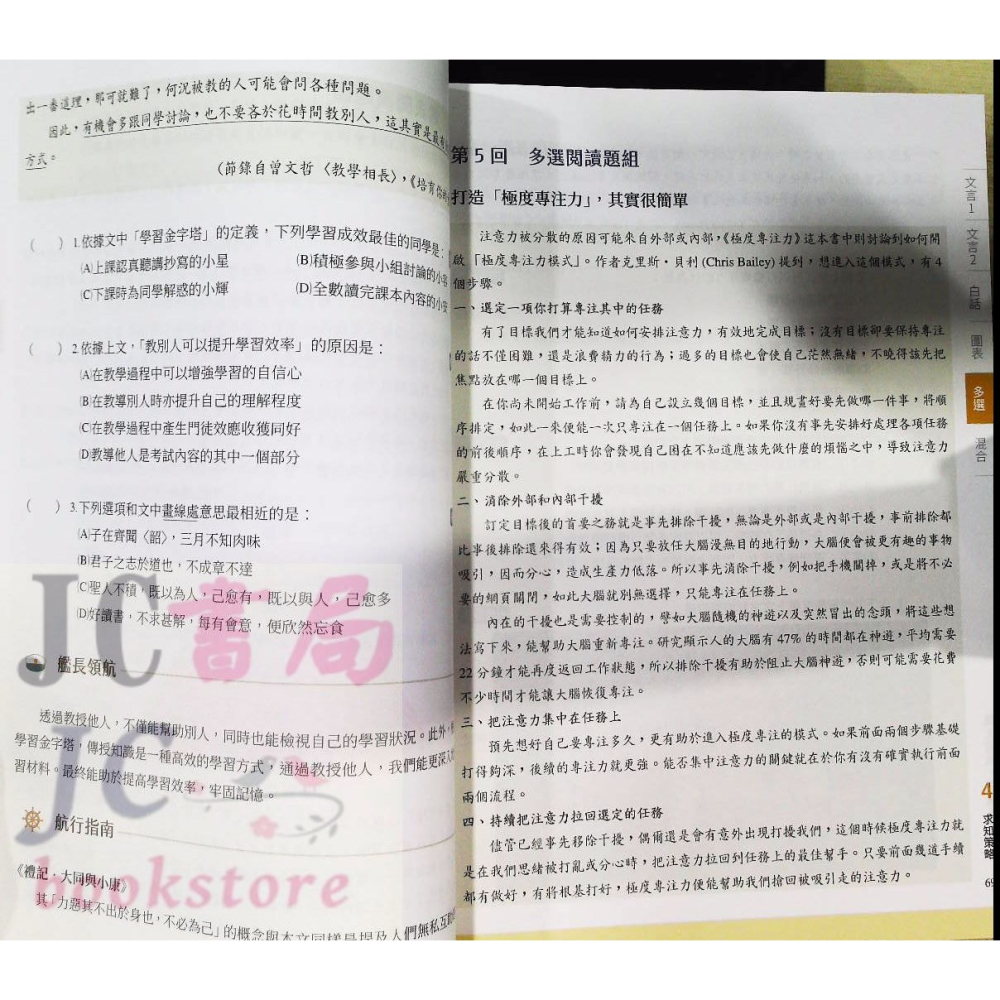 出一番道理，那可就難了，何況被教的人可能會問各種問題。
因此，有機會多跟同學討論，也不要吝於花時間教別人，這其實是最有
方式。
（節錄自曾文哲〈教學相長〉，《培育
（　）1.依據文中「學習金字塔」的定義，下列學習成效最佳的同學是：
(A)上課認真聽講抄寫的小星　(B)積極參與小組討論的小
(C)下課時為同學解惑的小輝　(D)全數讀完課本內容的小
（　）2.依據上文，「教別人可以提升學習效率」的原因是：
(A)在教學過程中可以增強學習的自信心
(B)在教導別人時亦提升自己的理解程度
(C)在教學過程中產生門徒效應收獲同好
(D)教導他人是考試內容的其中一個部分
（　）3.下列選項和文中畫線處意思最相近的是：
(A)子在齊聞〈韶〉，三月不知肉味
(B)君子之志於道也，不成章不達
(C)聖人不積，既以為人，己愈有，既以與人，己愈多
(D)好讀書，不求甚解，每有會意，便欣然忘食
艦長領航
透過教授他人，不僅能幫助別人，同時也能檢視自己的學習狀況。此外，
學習金字塔，傳授知識是一種高效的學習方式，通過教授他人，我們能更深入
習材料。最終能助於提高學習效率，牢固記憶。
航行指南
《禮記．大同與小康》
其「力惡其不出於身也，不必為己」的概念與本文同樣是提及人們無私互
JC書局
JC
bookstore
第5回　多選閱讀題組
打造「極度專注力」，其實很簡單
注意力被分散的原因可能來自外部或內部，《極度專注力》這本書中則討論到如何開
啟「極度專注力模式」。作者克里斯・貝利 (Chris Bailey) 提到，想進入這個模式，有 4
個步驟。
一、選定一項你打算專注其中的任務
有了目標我們才能知道如何安排注意力，有效地完成目標；沒有目標卻要保持專注
的話不僅困難，還是浪費精力的行為；過多的目標也會使自己茫然無緒，不曉得該先把
焦點放在哪一個目標上。
在你尚未開始工作前，請為自己設立幾個目標，並且規畫好要先做哪一件事，將順
序排定，如此一來便能一次只專注在一個任務上。如果你沒有事先安排好處理各項任務
的前後順序，在上工時你會發現自己困在不知道應該先做什麼的煩惱之中，導致注意力
嚴重分散。
二、消除外部和內部干擾
訂定目標後的首要之務就是事先排除干擾，無論是外部或是內部干擾，事前排除都
比事後排除還來得有效；因為只要放任大腦漫無目的地行動，大腦便會被更有趣的事物
吸引，因而分心，造成生產力低落。所以事先消除干擾，例如把手機關掉，或是將不必
要的網頁關閉，如此大腦就別無選擇，只能專注在任務上。
內在的干擾也是需要控制的，譬如大腦隨機的神遊以及突然冒出的念頭，將這些想
法寫下來，能幫助大腦重新專注。研究顯示人的大腦有 47% 的時間都在神遊，平均需要
22 分鐘才能再度返回工作狀態，所以排除干擾有助於阻止大腦神遊，否則可能需要花費
不少時間才能讓大腦恢復專注。
三、把注意力集中在任務上
預先想好自己要專注多久，更有助於進入極度專注的模式。如果前面兩個步驟基礎
打得夠深，後續的專注力就更強。能否集中注意力的關鍵就在於你有沒有確實執行前面
兩個流程。
四、持續把注意力拉回選定的任務
儘管已經事先移除干擾，偶爾還是會有意外出現打擾我們，這個時候極度專注力就
是在我們思緒被打亂或分心時，把注意力拉回到任務上的最佳幫手。只要前面幾道手續
都有做好，有將根基打好，極度專注力便能幫助我們搶回被吸引走的注意力。
文言1
文言2
白話
圖表
多選
混合
4
求知策略